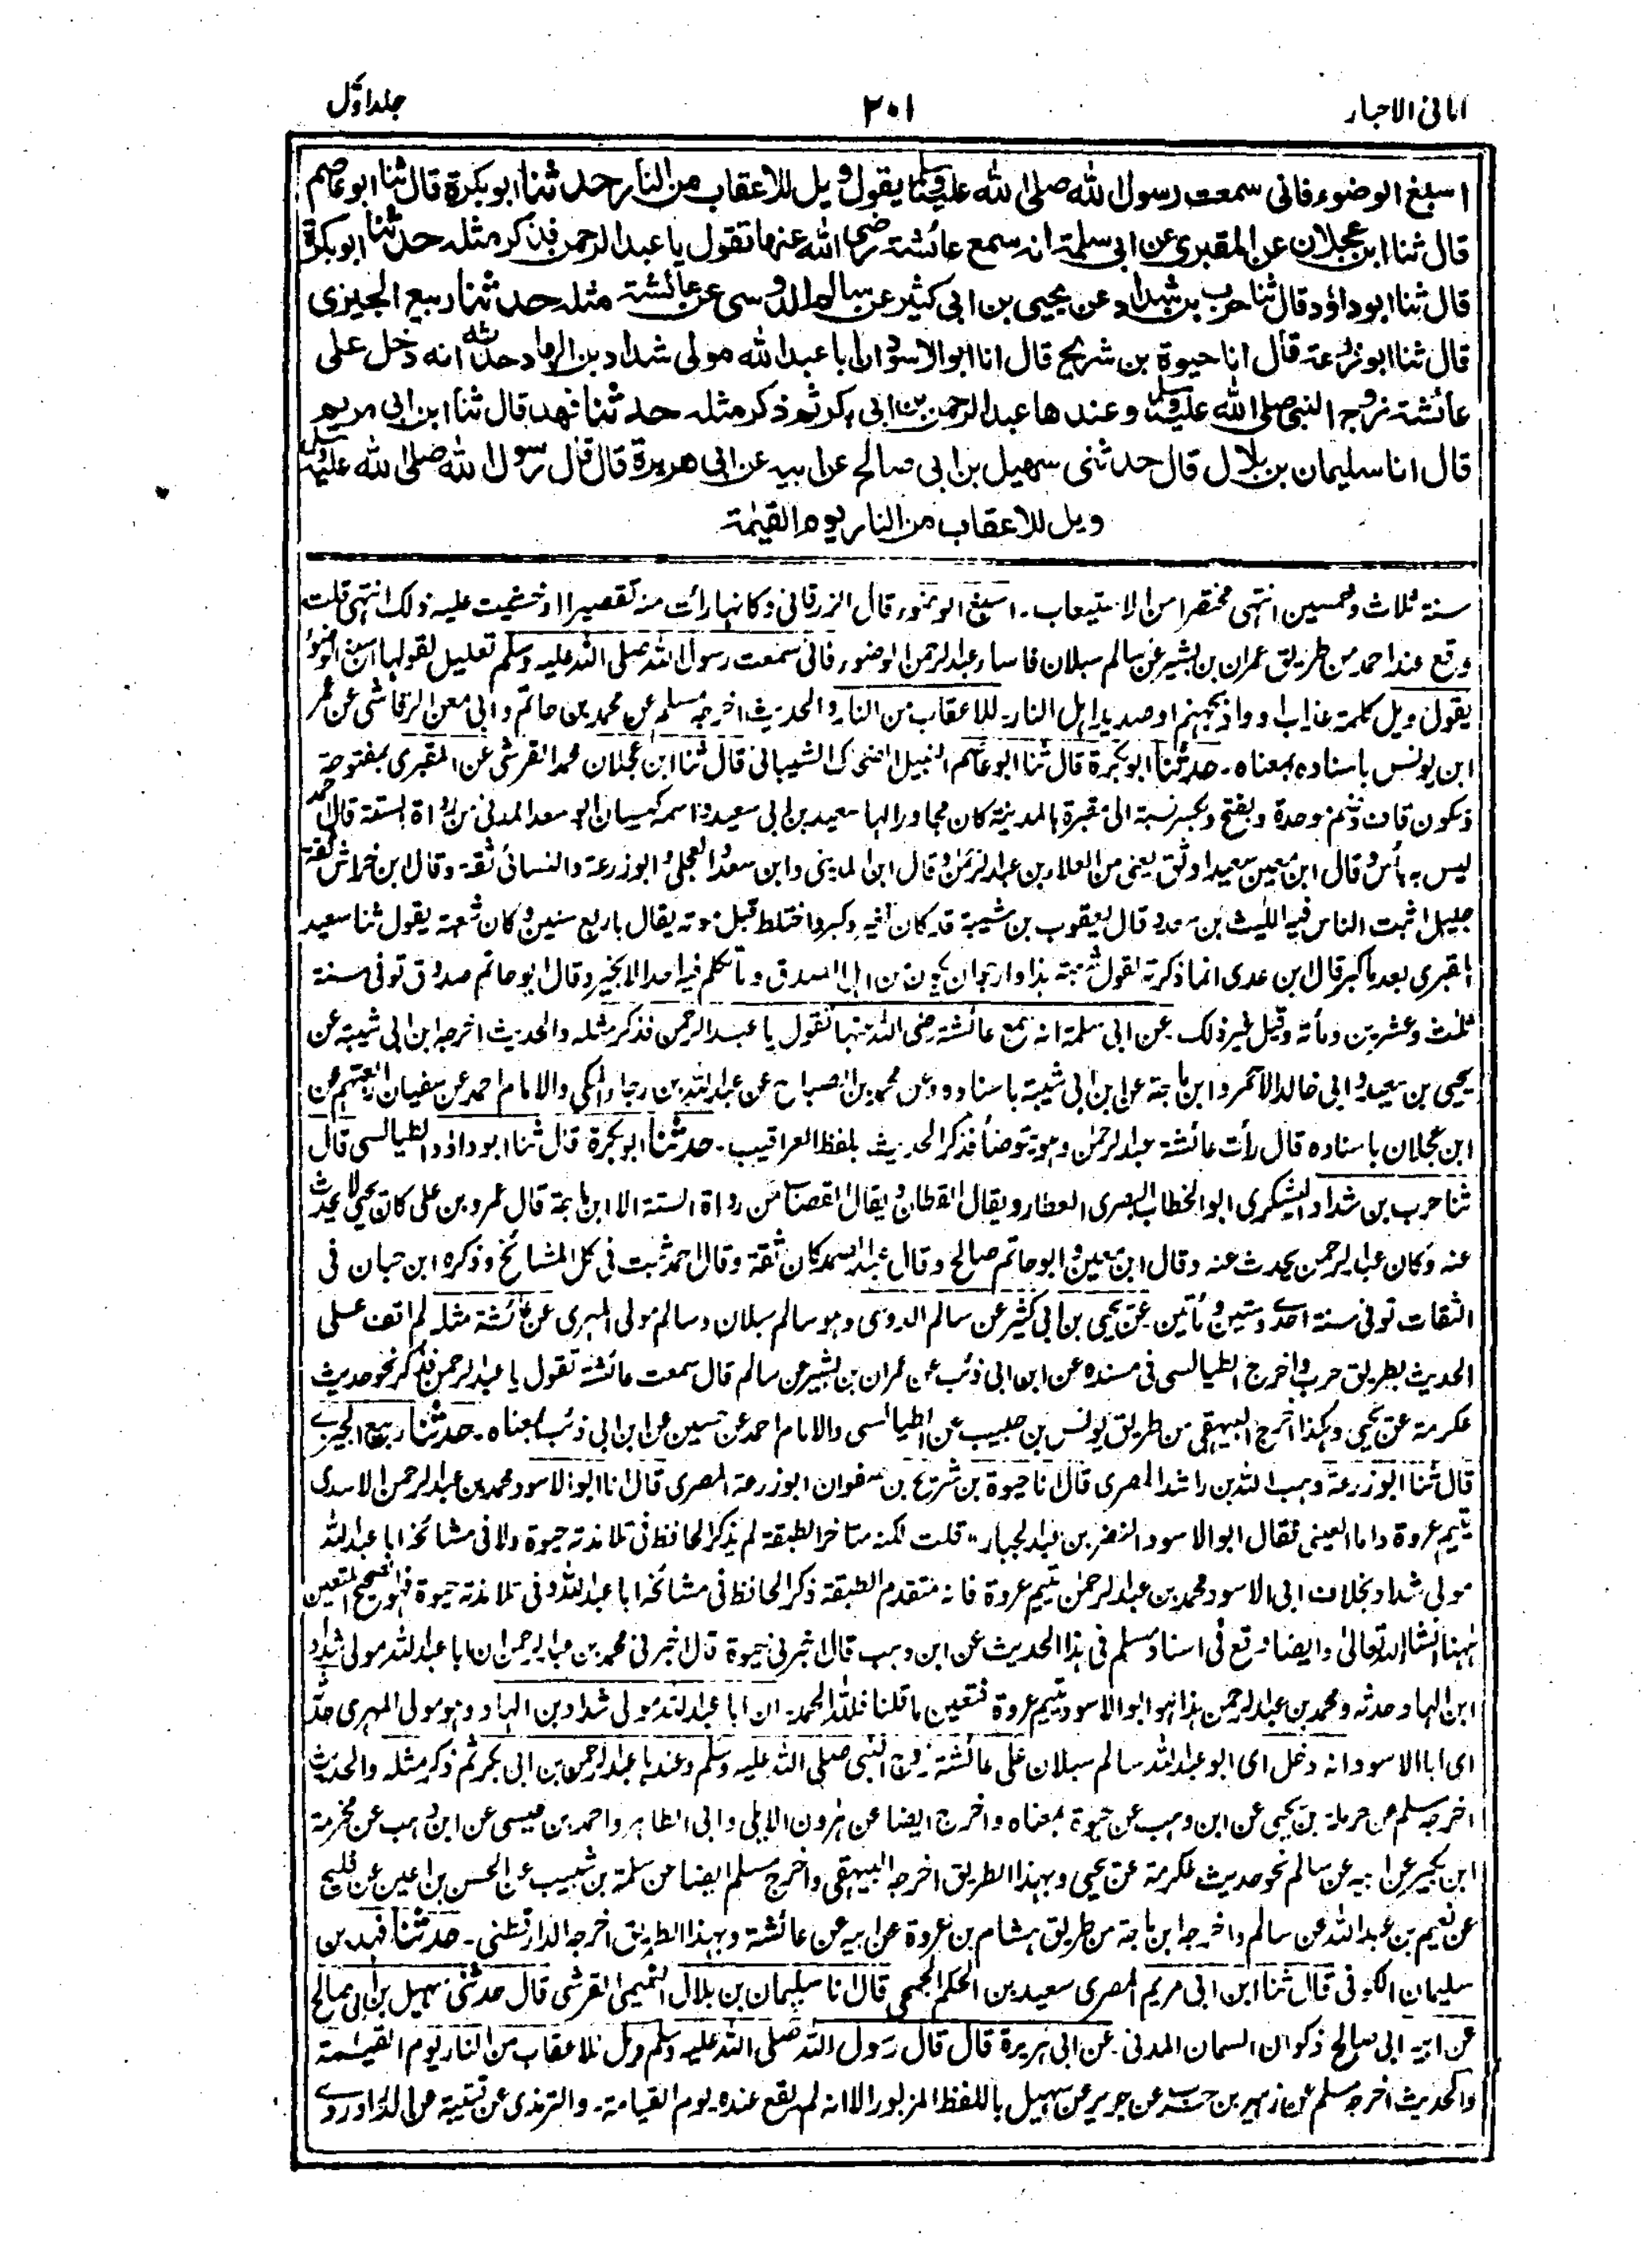 امانی الاحبار ۲۰۱ جلد اوّل
اسبغ الوضوء فانی سمعت رسول الله صلی الله علیه وسلم یقول ویل للاعقاب من النار حدثنا ابو بکرة قال ثنا ابو عاصم
قال ثنا ابن عجلان عن المقبری عن ابی سلمة انه سمع عائشة رضی الله عنها تقول یا عبد الرحمن فذکر مثله حدثنا ابو بکرة
قال ثنا ابو داؤد قال ثنا حرب بن شداد عن یحیی بن ابی کثیر عن سالم الدوسی عن عائشة مثله حدثنا ربیع الجیزی
قال ثنا ابو زرعة قال انا حیوة بن شریح قال انا ابو الاسود ان ابا عبد الله مولی شداد بن الهاد حدثه انه دخل علی
عائشة زوج النبی صلی الله علیه وسلم وعندها عبد الرحمن بن ابی بکر ثم ذکر مثله حدثنا فهد قال ثنا ابن ابی مریم
قال انا سلیمان بن بلال قال حدثنی سهیل بن ابی صالح عن ابیه عن ابی هریرة قال قال رسول الله صلی الله علیه وسلم
ویل للاعقاب من النار یوم القیٰمة
سنة ثلاث وخمسین انتهی مختصرا من الاستیعاب۔ اسبغ الوضوء قال الزرقانی وکانها رأت منه تقصیرا او خشیت علیه ذلک انتهی قلت
وقع عند احمد من طریق عمران بن بشیر عن سالم سبلان فاساء عبد الرحمن الوضوء فانی سمعت رسول الله صلی الله علیه وسلم تعلیل لقولها اسبغ الوضوء
یقول ویل کلمة عذاب او واد بجهنم او صدید اهل النار للاعقاب من النار والحدیث اخرجه مسلم عن محمد بن حاتم وابی معن الرقاشی عن عمر
ابن یونس باسناده بمعناه۔ حدثنا ابو بکرة قال ثنا ابو عاصم النبیل الضحاک الشیبانی قال ثنا ابن عجلان محمد القرشی عن المقبری بمفتوحة
وسکون قاف وضم موحدة وبفتح وبکسر نسبة الی مقبرة بالمدینة کان مجاورا لها سعید بن ابی سعید واسمه کیسان ابو سعد المدنی من رواة الستة قال احمد
لیس به بأس وقال ابن معین سعید اوثق یعنی من العلاء بن عبد الرحمن وقال ابن المدینی وابن سعد والعجلی وابو زرعة والنسائی ثقة وقال ابن خراش ثقة
جلیل اثبت الناس فیه اللیث بن سعد وقال یعقوب بن شیبة قد کان تغیر وکبر واختلط قبل موته یقال باربع سنین وکان شعبة یقول ثنا سعید
المقبری بعد ما کبر قال ابن عدی انما ذکرته لقول شعبة هذا وارجو ان یکون من اهل الصدق وما تکلم فیه احد الا بخیر وقال ابو حاتم صدوق توفی سنة
ثلث وعشرین ومأة وقیل غیر ذلک عن ابی سلمة انه سمع عائشة رضی الله عنها تقول یا عبد الرحمن فذکر مثله والحدیث اخرجه ابن ابی شیبة عن
یحیی بن سعید وابی خالد الاحمر وابن ماجة عن ابن ابی شیبة باسناده وعن محمد بن الصباح عن عبد الله بن رجاء المکی والامام احمد عن سفیان اربعتهم عن
ابن عجلان باسناده قال رأت عائشة عبد الرحمن وهو یتوضأ فذکر الحدیث بلفظ العراقیب۔ حدثنا ابو بکرة قال ثنا ابو داؤد الطیالسی قال
ثنا حرب بن شداد الیشکری ابو الخطاب البصری العطار ویقال القطان ویقال القصاب من رواة الستة الا ابن ماجة قال عمرو بن علی کان یحیی لا یحدث
عنه وکان عبد الرحمن یحدث عنه وقال ابن معین وابو حاتم صالح وقال عبد الصمد کان ثقة وقال احمد ثبت فی کل المشائخ وذکره ابن حبان فی
الثقات توفی سنة احدی وستین ومأتین عن یحیی بن ابی کثیر عن سالم الدوسی وهو سالم سبلان وسالم مولی المهری عن عائشة مثله لم اقف علی
الحدیث بطریق حرب واخرج الطیالسی فی مسنده عن ابن ابی ذئب عن عمران بن بشیر عن سالم قال سمعت عائشة تقول یا عبد الرحمن فذکر نحو حدیث
عکرمة عن یحیی وهکذا اخرج البیهقی من طریق یونس بن حبیب عن الطیالسی والامام احمد عن حسین عن ابن ابی ذئب بمعناه۔ حدثنا ربیع الجیزی
قال ثنا ابو زرعة وهب الله بن راشد المصری قال انا حیوة بن شریح بن صفوان ابو زرعة المصری قال انا ابو الاسود محمد بن عبد الرحمن الاسدی
یتیم عروة واما العینی فقال ابو الاسود النضر بن عبد الجبار۔ قلت لکنه متأخر الطبقة لم یذکر الحافظ فی تلامذته حیوة ولا فی مشائخه ابا عبد الله
مولی شداد بخلاف ابی الاسود محمد بن عبد الرحمن یتیم عروة فانه متقدم الطبقة ذکر الحافظ فی مشائخه ابا عبد الله وفی تلامذته حیوة فهو الصحیح المتعین
ههنا انشاء الله تعالی وایضا وقع فی اسناد مسلم فی هذا الحدیث عن ابن وهب قال اخبرنی حیوة قال اخبرنی محمد بن عبد الرحمن ان ابا عبد الله مولی شداد
ابن الهاد حدثه ومحمد بن عبد الرحمن هذا هو ابو الاسود یتیم عروة فتعین ما قلنا فلله الحمد۔ ان ابا عبد الله مولی شداد بن الهاد وهو مولی المهری حدثه
ای ابا الاسود انه دخل ای ابو عبد الله سالم سبلان علی عائشة زوج النبی صلی الله علیه وسلم وعندها عبد الرحمن بن ابی بکر ثم ذکر مثله والحدیث
اخرجه مسلم عن حرملة بن یحیی عن ابن وهب عن حیوة بمعناه واخرج ایضا عن هرون الایلی وابی الطاهر واحمد بن عیسی عن ابن وهب عن مخرمة
ابن بکیر عن ابیه عن سالم نحو حدیث عکرمة عن یحیی وبهذا الطریق اخرجه البیهقی واخرج مسلم ایضا عن سلمة بن شبیب عن الحسن بن اعین عن فلیح
عن نعیم بن عبد الله عن سالم واخرجه ابن ماجة من طریق هشام بن عروة عن ابیه عن عائشة وبهذا الطریق اخرجه الدارقطنی۔ حدثنا فهد بن
سلیمان الکوفی قال ثنا ابن ابی مریم المصری سعید بن الحکم الجمحی قال انا سلیمان بن بلال التیمی القرشی قال حدثنی سهیل بن ابی صالح
عن ابیه ابی صالح ذکوان السمان المدنی عن ابی هریرة قال قال رسول الله صلی الله علیه وسلم ویل للاعقاب من النار یوم القیٰمة
والحدیث اخرجه مسلم عن زهیر بن حرب عن جریر عن سهیل باللفظ المزبور الا انه لم یقع عنده یوم القیامة۔ والترمذی عن قتیبة عن الدراوردی